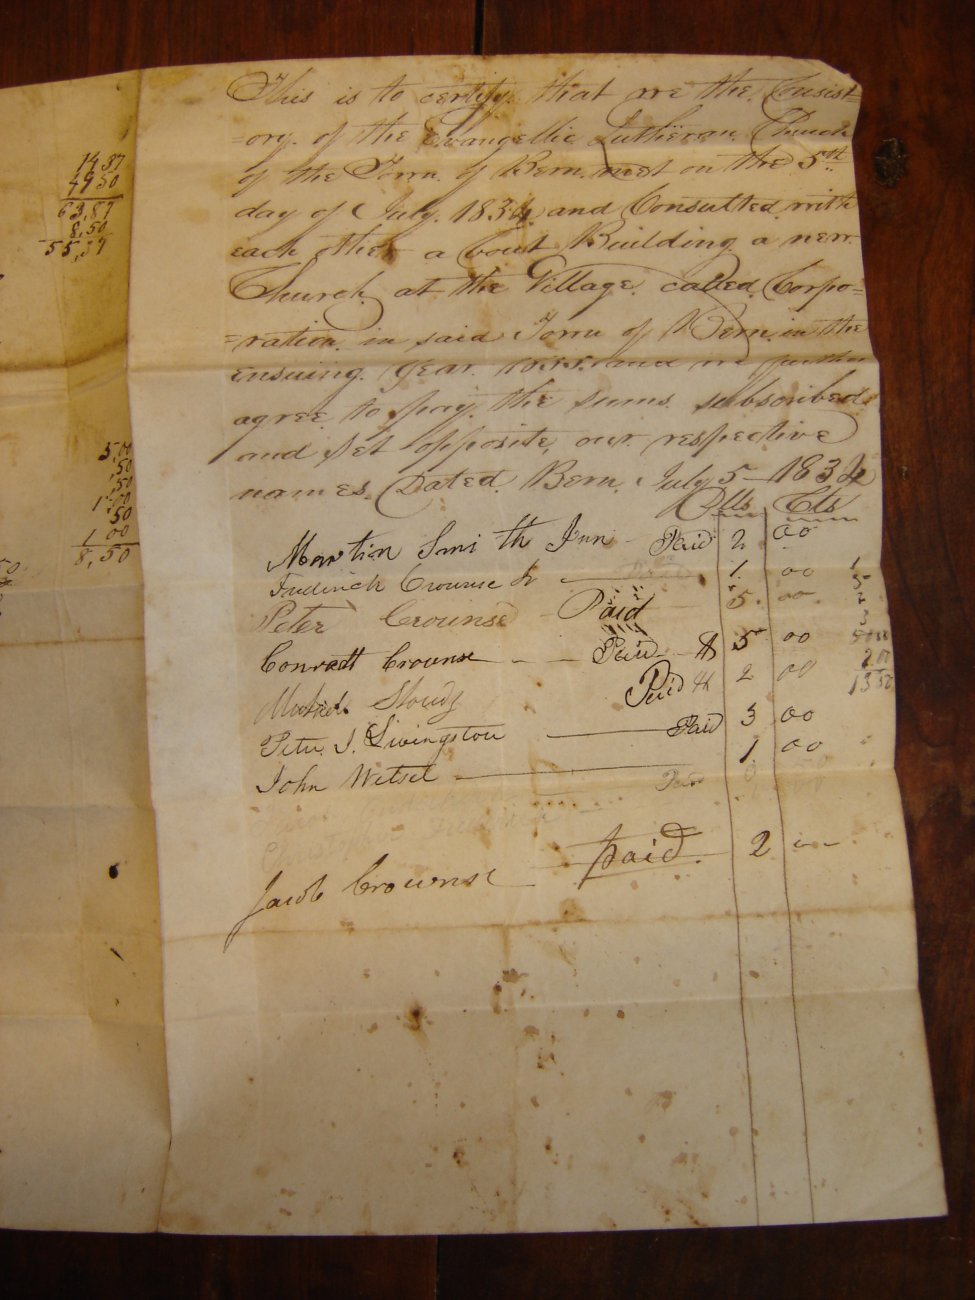 14 37
49 50
63,87
8,50
55,37
5,00
,50
,50
1 00
50
1 00
8,50
This is to certify. that we the Consist-
-ory. of the Evangellic Lutheran. Church
of the Town. of Bern. met on the 5th
day of July. 1834 and Consulted with
each other a bout Building a new.
Church. at the Village. called. Corpo=
=ration. in said Town of Bern. in the
ensuing. year. 1835. and we further
agree to pay. the sums. subscribed
and set opposite, our respective
names. Dated. Bern. July 5 - 1834
Dlls Cts
Martin Smi th Jun Paid 2 00
Fredrick Crounse Jr Paid 1. 00
Peter Crounse Paid 5. 00
Conradt Crounse Paid 5 00
Paid 2 00
Peter J. Livingston Paid 3 00
John Wetsel 1 00
Paid
Jacob Crounse paid. 2
2 00
13 50